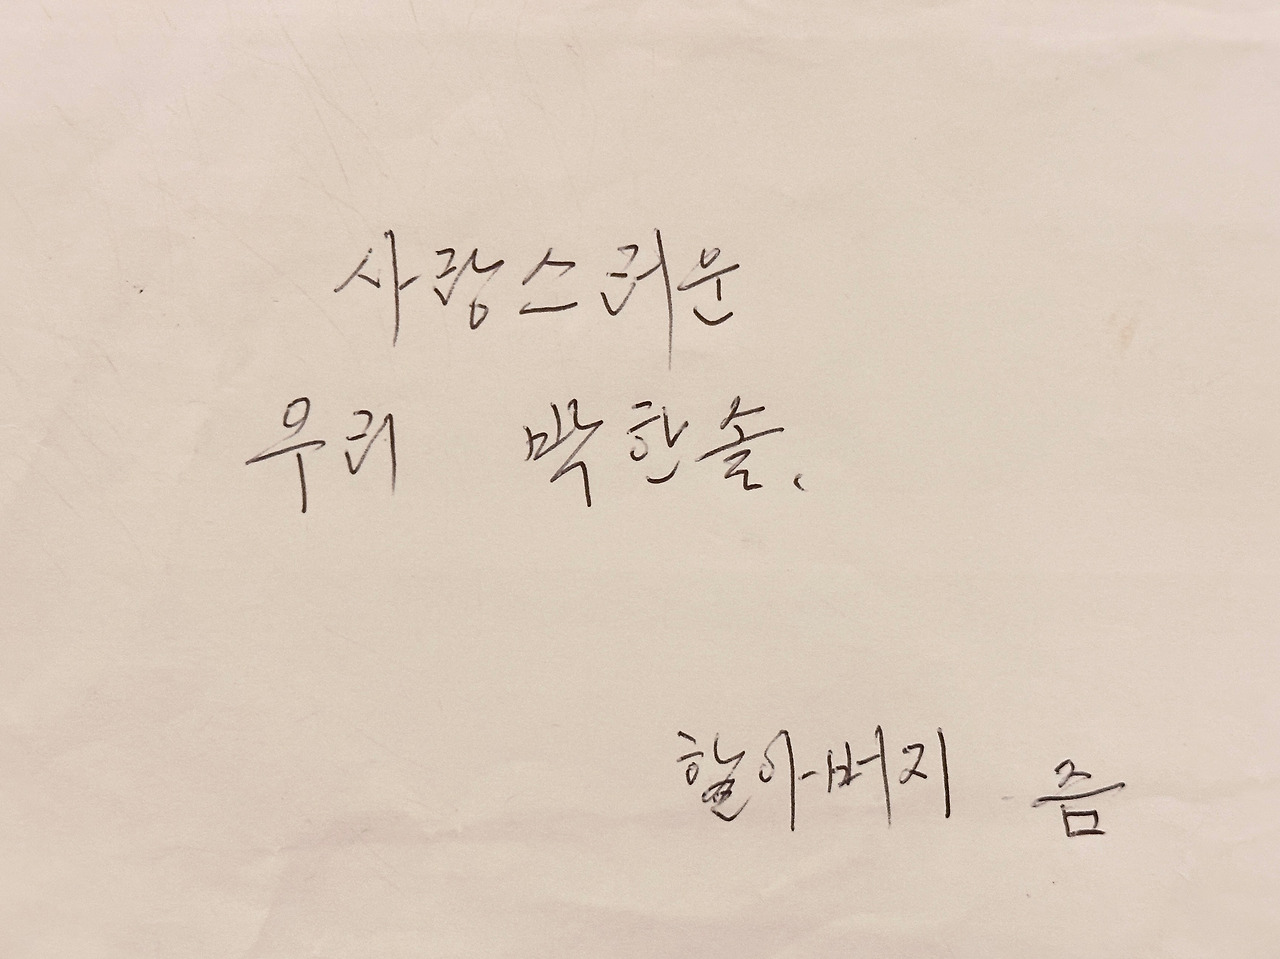 사랑스러운
우리 박한솔.
할아버지 즘